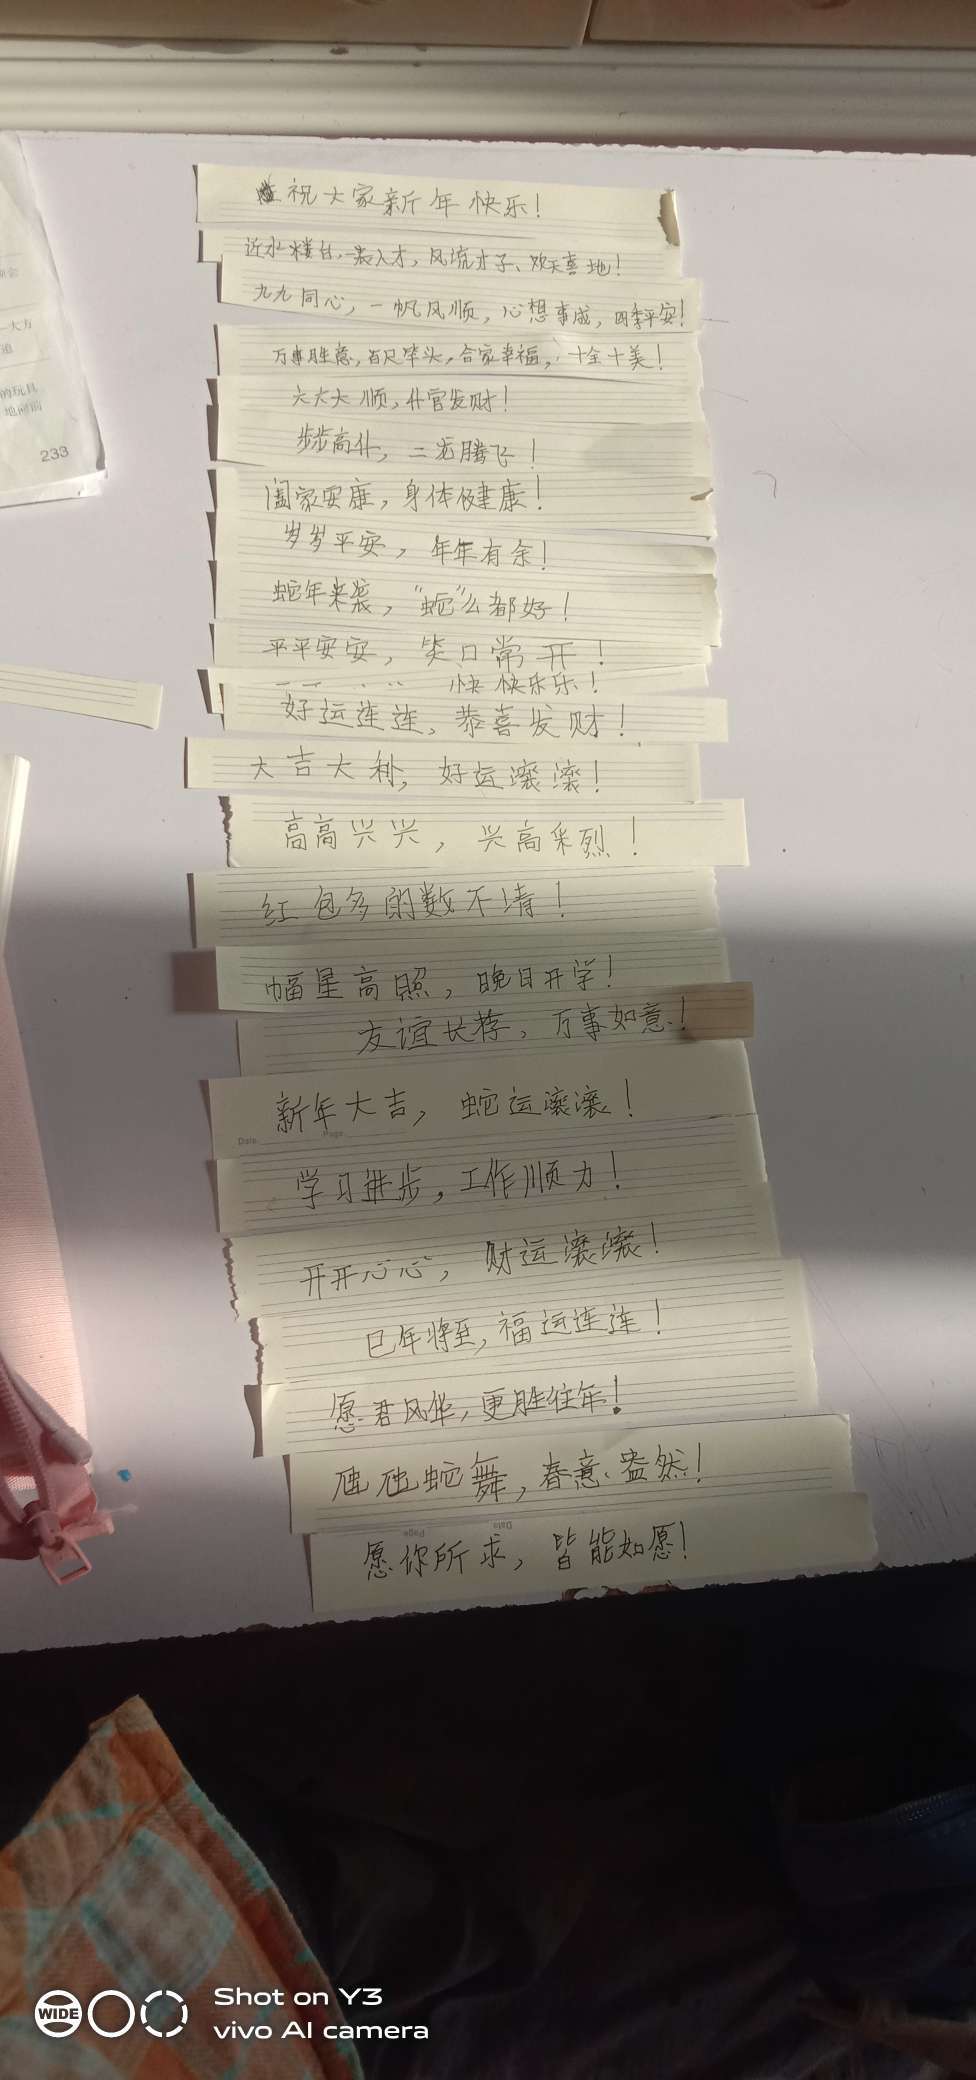 祝大家新年快乐！
近水楼台，一表人才，风流才子、欢天喜地！
九九同心，一帆风顺，心想事成，四季平安！
万事胜意，百尺竿头，合家幸福，十全十美！
六六大顺，升官发财！
步步高升，二龙腾飞！
阖家安康，身体健康！
岁岁平安，年年有余！
蛇年来袭，“蛇”么都好！
平平安安，笑口常开！
快快乐乐！
好运连连，恭喜发财！
大吉大利，好运滚滚！
高高兴兴，兴高采烈！
红包多的数不清！
幅星高照，晚日开学！
友谊长存，万事如意！
新年大吉，蛇运滚滚！
Date. Page.
学习进步，工作顺力！
开开心心，财运滚滚！
巳年将至，福运连连！
愿君风华，更胜往年！
蛇舞，春意盎然！
Date Page
愿你所求，皆能如愿！
233
大方
的玩具
地
WIDE
Shot on Y3
vivo AI camera